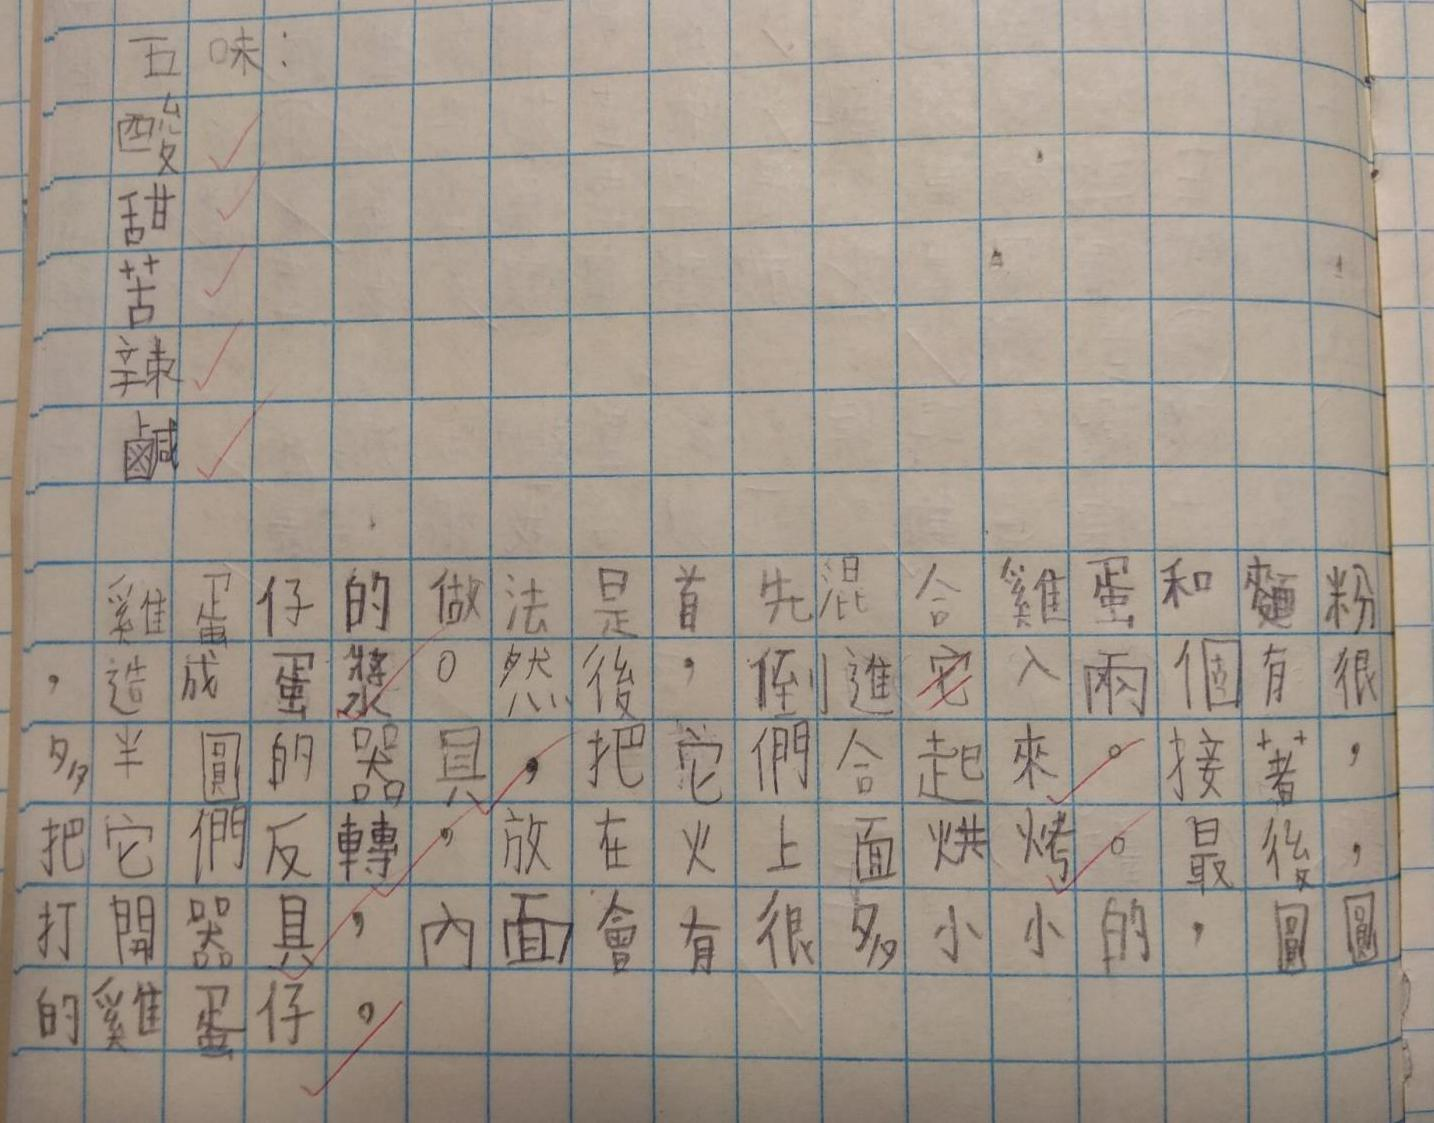 五味：
酸
甜
苦
辣
鹹
雞蛋仔的做法是首先混合雞蛋和麵粉
，造成蛋漿。然後，倒進它入兩個有很
多半圓的器具，把它們合起來。接著，
把它們反轉，放在火上面烘烤。最後，
打開器具，內面會有很多小小的，圓圓
的雞蛋仔。